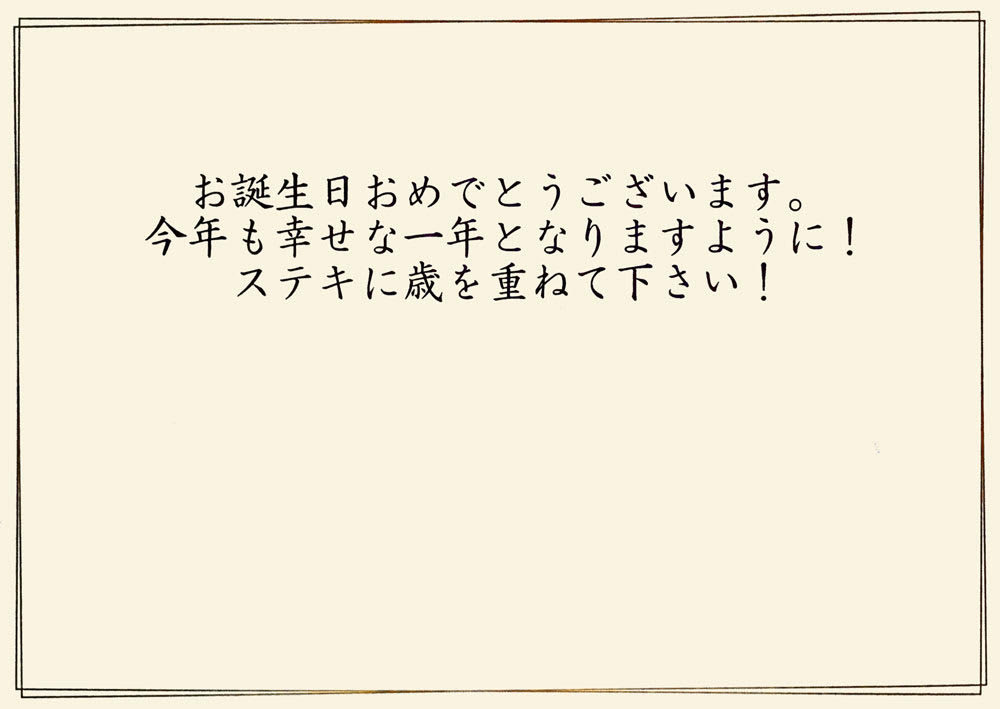 お誕生日おめでとうございます。
今年も幸せな一年となりますように！
ステキに歳を重ねて下さい！